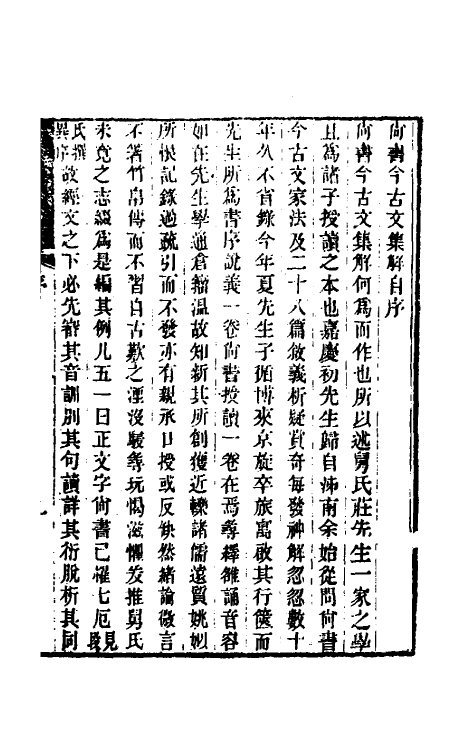 尙書今古文集解自序
尙書今古文集解何爲而作也所以述舅氏莊先生一家之學
且爲諸子授讀之本也嘉慶初先生歸自泲南余始從問尙書
今古文家法及二十八篇敘義析疑賞奇每發神解忽忽數十
年久不省錄今年夏先生子循博來京旋卒旅寓啟其行篋而
先生所爲書序說義一卷尙書授讀一卷在焉尋釋雒誦音容
如在先生學通倉籀溫故知新其所創獲近轢諸儒遠質姚姒
所恨記錄過疏引而不發亦有親承口授或反缺然緒論微言
不著竹帛傳而不習自古歎之湮沒駸尋玩愒滋懼爰推舅氏
未竟之志綴爲是編其例凡五一曰正文字尙書已權七厄見段
氏撰異序故經文之下必先審其音訓別其句讀詳其衍脫析其同